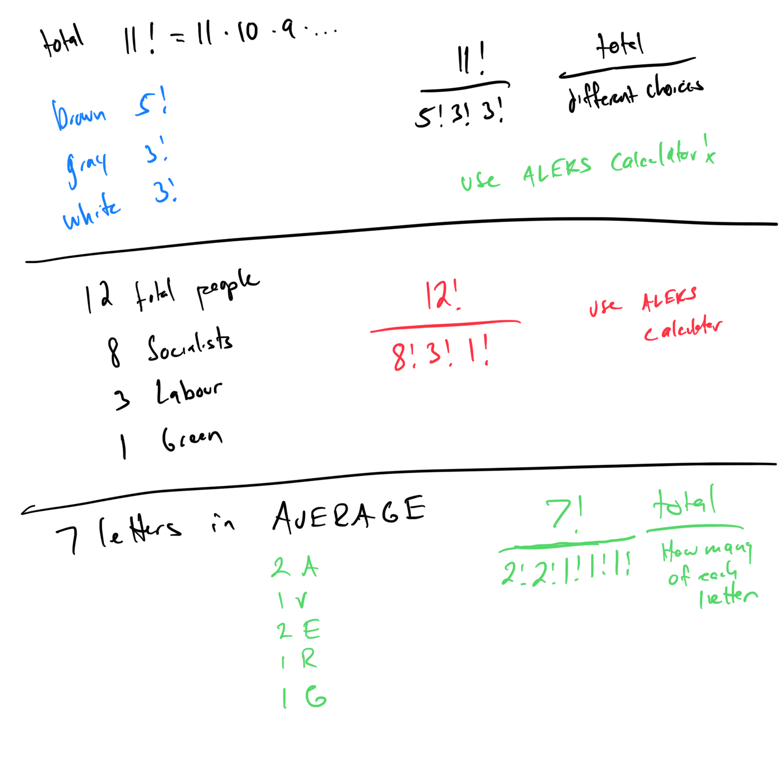 total 11! = 11 · 10 · 9 · ...
brown 5!
gray 3!
white 3!
11!
5! 3! 3!
total
different choices
use ALEKS calculator!
12 total people
8 Socialists
3 Labour
1 Green
12!
8! 3! 1!
use ALEKS
calculator
7 letters in AVERAGE
2 A
1 V
2 E
1 R
1 G
7!
2! 2! 1! 1! 1!
total
How many
of each
letter